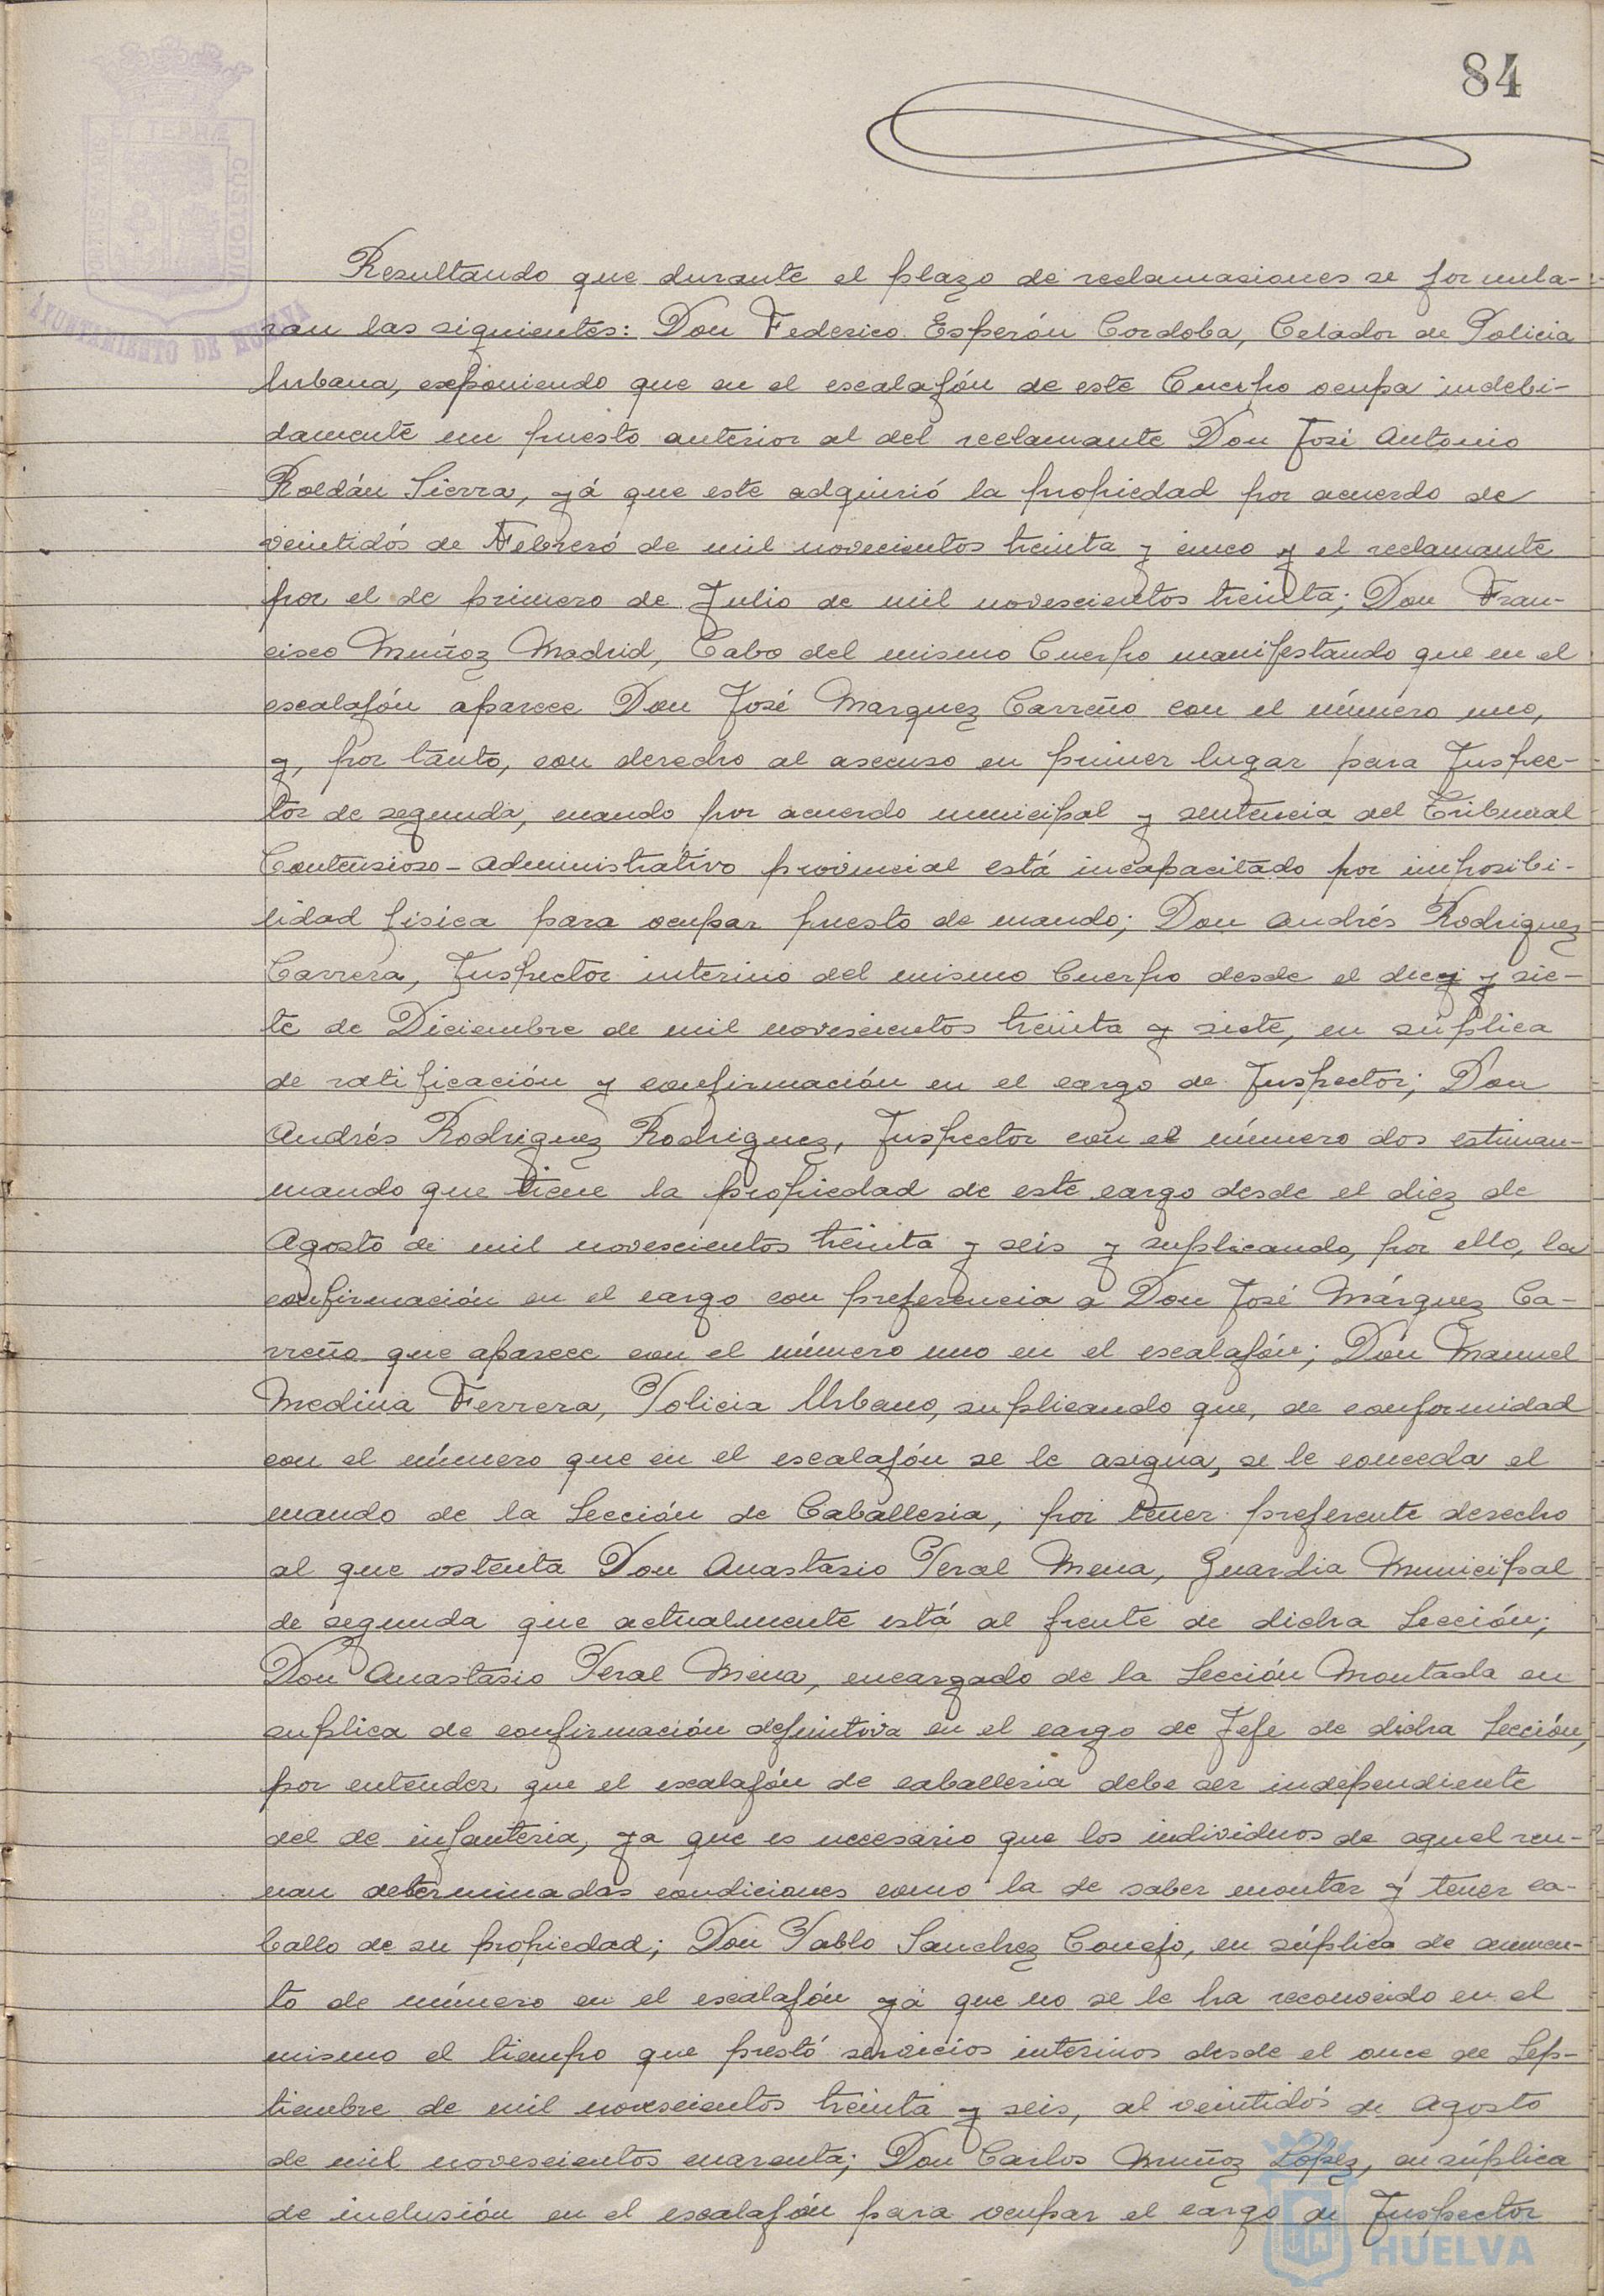 84
PORTUS MARIS
ET TERRÆ
CUSTODIA
AYUNTAMIENTO DE HUELVA
Resultando que durante el plazo de reclamasiones se formula-
ran las siguientes: Don Federico Esperón Cordoba, Celador de Policia
Urbana, exponiendo que en el escalafón de este Cuerpo ocupa indebi-
damente un puesto anterior al del reclamante Don José Antonio
Roldán Sierra, yá que este adquirió la propiedad por acuerdo de
veintidós de Febreró de mil novecientos treinta y cinco y el reclamante
por el de primero de Julio de mil novescientos treinta; Don Fran-
cisco Muñoz Madrid, Cabo del mismo Cuerpo manifestando que en el
escalafón aparece Don José Marquez Carreño con el número uno,
y, por tanto, con derecho al ascenso en primer lugar para Inspec-
tor de segunda, cuando por acuerdo municipal y sentencia del Tribunal
Contensioso-administrativo provincial está incapacitado por imposibi-
lidad fisica para ocupar puesto de mando; Don Andrés Rodriguez
Carrera, Inspector interino del mismo Cuerpo desde el diez y sie-
te de Diciembre de mil novescientos treinta y siete, en súplica
de ratificación y confirmación en el cargo de Inspector; Don
Andrés Rodriguez Rodriguez, Inspector con el número dos estiman-
mando que tiene la propiedad de este cargo desde el diez de
Agosto de mil novescientos treinta y seis y suplicando, por ello, la
confirmación en el cargo con preferencia a Don José Márquez Ca-
rreño que aparece con el número uno en el escalafón; Don Manuel
Medina Ferrera, Policia Urbano, suplicando que, de conformidad
con el número que en el escalafón se le asigna, se le conceda el
mando de la Sección de Caballeria, por tener preferente derecho
al que ostenta Don Anastasio Peral Mena, Guardia Municipal
de segunda que actualmente está al frente de dicha Sección;
Don Anastasio Peral Mena, encargado de la Sección Montada en
suplica de confirmación definitiva en el cargo de Jefe de dicha Sección,
por entender que el escalafón de caballeria debe ser independiente
del de infanteria, ya que es necesario que los individuos de aquel reu-
nan determinadas condiciones como la de saber montar y tener ca-
ballo de su propiedad; Don Pablo Sanchez Conejo, en súplica de aumen-
to de número en el escalafón yá que no se le ha reconocido en el
mismo el tiempo que prestó servicios interinos desde el once de Sep-
tiembre de mil novescientos treinta y seis, al veintidós de Agosto
de mil novescientos cuarenta; Don Carlos Muñoz López, en súplica
de inclusión en el escalafón para ocupar el cargo de Inspector
HUELVA